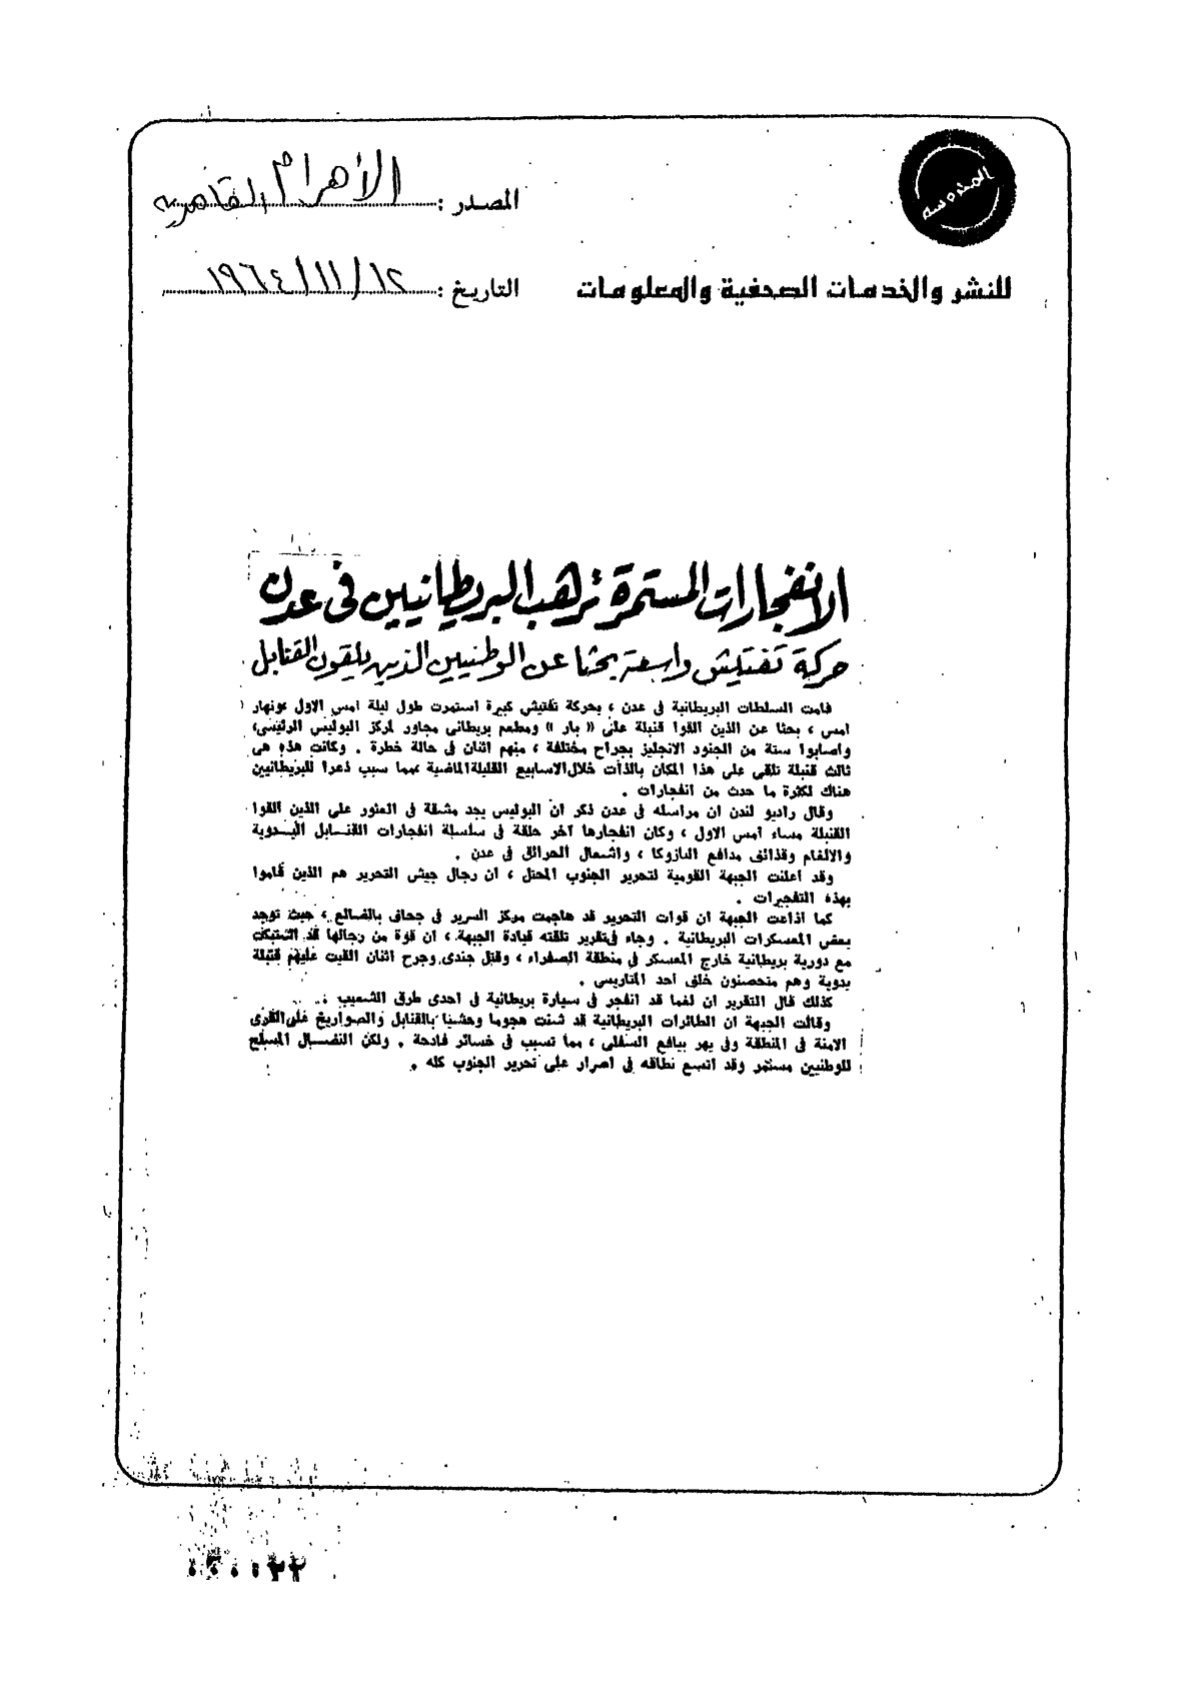 المحروسة
المصدر : الأهرام القاهرية
للنشر والخدمات الصحفية والمعلومات
التاريخ : ١٩٦٤/١١/١٢
الانفجارات المستمرة ترهب البريطانيين فى عدن
حركة تفتيش واسعة بحثا عن الوطنيين الذين يلقون القنابل
قامت السلطات البريطانية فى عدن ، بحركة تفتيش كبيرة استمرت طول ليلة امس الاول ونهار
امس ، بحثا عن الذين القوا قنبلة على « بار » ومطعم بريطانى مجاور لمركز البوليس الرئيسى،
واصابوا ستة من الجنود الانجليز بجراح مختلفة ، منهم اثنان فى حالة خطرة . وكانت هذه هى
ثالث قنبلة تلقى على هذا المكان بالذات خلال الاسابيع القليلة الماضية مما سبب ذعرا للبريطانيين
هناك لكثرة ما حدث من انفجارات .
وقال راديو لندن ان مراسله فى عدن ذكر ان البوليس يجد مشقة فى العثور على الذين القوا
القنبلة مساء امس الاول ، وكان انفجارها آخر حلقة فى سلسلة انفجارات القنابل اليدوية
والالغام وقذائف مدافع البازوكا ، واشعال الحرائق فى عدن .
وقد اعلنت الجبهة القومية لتحرير الجنوب المحتل ، ان رجال جيش التحرير هم الذين قاموا
بهذه التفجيرات .
كما اذاعت الجبهة ان قوات التحرير قد هاجمت مركز السرير فى جحاف بالضالع ، حيث توجد
بعض المعسكرات البريطانية . وجاء فى تقرير تلقته قيادة الجبهة ، ان قوة من رجالها قد اشتبكت
مع دورية بريطانية خارج المعسكر فى منطقة الصفراء ، وقتل جندى وجرح اثنان القيت عليهم قنبلة
يدوية وهم متحصنون خلف احد المتاريس .
كذلك قال التقرير ان لغما قد انفجر فى سيارة بريطانية فى احدى طرق الشعيب .
وقالت الجبهة ان الطائرات البريطانية قد شنت هجوما وحشيا بالقنابل والصواريخ على القرى
الامنة فى المنطقة وفى يهر بيافع السفلى ، مما تسبب فى خسائر فادحة . ولكن النضال المسلح
للوطنيين مستمر وقد اتسع نطاقه فى اصرار على تحرير الجنوب كله .